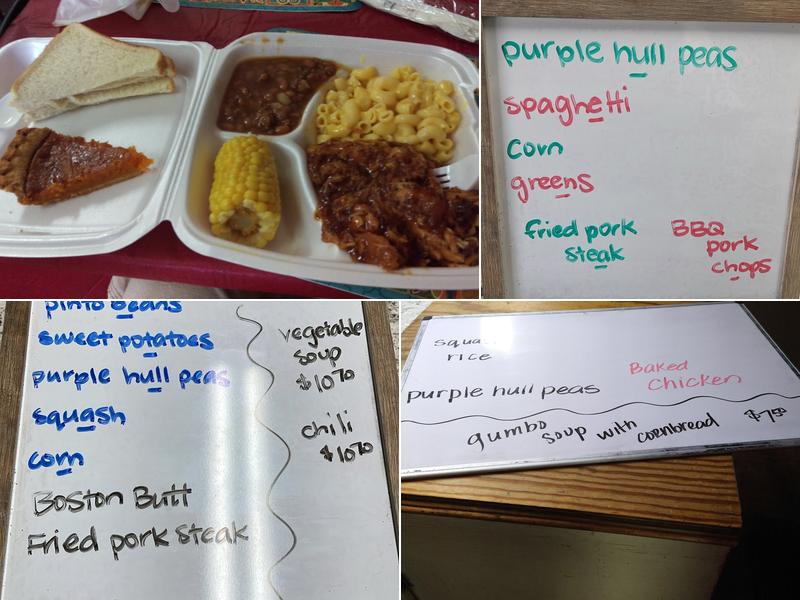 purple hull peas
spaghetti
corn
greens
fried pork
steak
BBQ
pork
chops
pinto beans
sweet potatoes
purple hull peas
squash
corn
Boston Butt
Fried pork steak
vegetable
soup
$10.70
chili
$10.70
rice
purple hull peas
Baked
Chicken
gumbo soup with cornbread $7.50